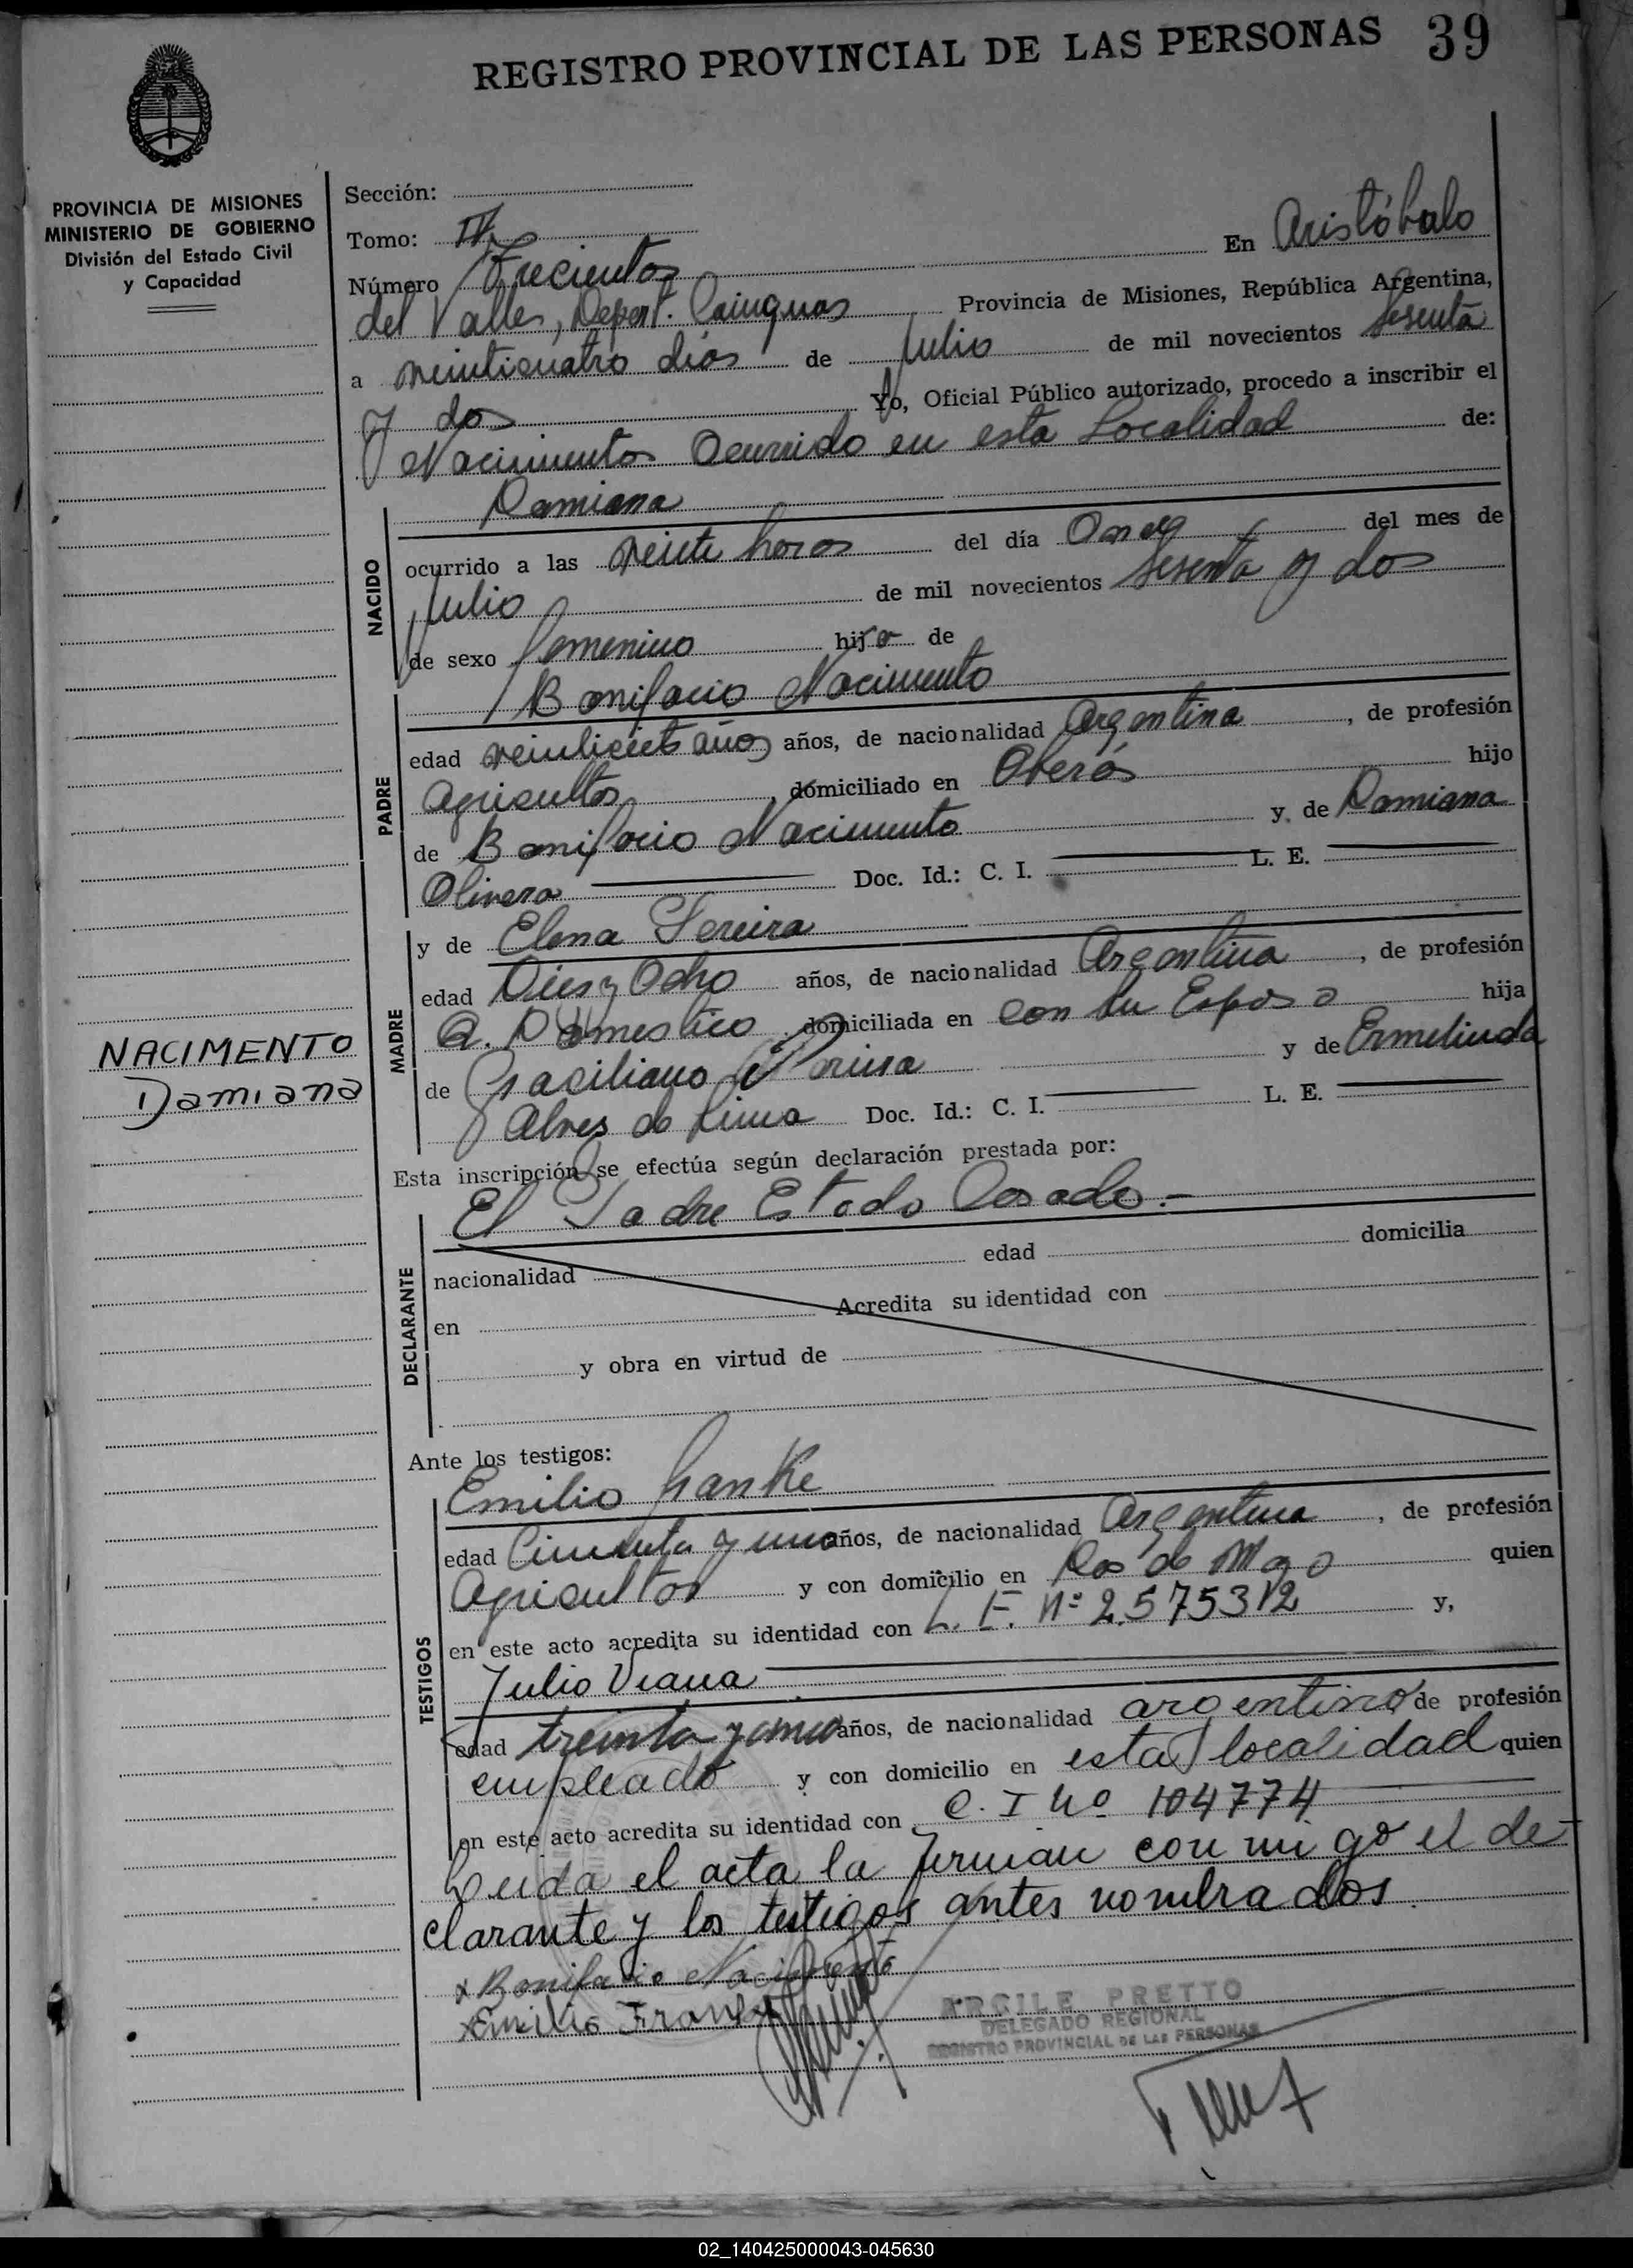 REGISTRO PROVINCIAL DE LAS PERSONAS 39
PROVINCIA DE MISIONES
MINISTERIO DE GOBIERNO
División del Estado Civil
y Capacidad
Sección:
Tomo: IV
Número Trecientos En Aristóbalo
del Valles, Depart. Cainguas Provincia de Misiones, República Argentina,
a veinticuatro dias de Julio de mil novecientos sesenta
y dos Yo, Oficial Público autorizado, procedo a inscribir el
Nacimiento Ocurrido en esta Localidad de:
NACIDO
Damiana
ocurrido a las veinte horas del día Once del mes de
Julio de mil novecientos sesenta y dos
de sexo femenino hija de
PADRE
Bonifacio Nacimento
edad años, de nacionalidad Argentina, de profesión
Agricultor, domiciliado en Oberá hijo
de Bonifacio Nacimento y de Damiana
Olivera Doc. Id.: C. I. L. E.
MADRE
y de Elena Pereira
edad Dies y Ocho años, de nacionalidad Argentina, de profesión
Q. Domestico domiciliada en con su Esposo hija
de y de Ermelinda
Alves de Lima Doc. Id.: C. I. L. E.
NACIMENTO
Damiana
Esta inscripción se efectúa según declaración prestada por:
El Padre Estado Casado.-
DECLARANTE
nacionalidad edad domicilia
en Acredita su identidad con
y obra en virtud de
Ante los testigos:
TESTIGOS
Emilio
edad años, de nacionalidad Argentina, de profesión
Agricultor y con domicilio en Dos de Mayo quien
en este acto acredita su identidad con L. E. Nº 2.575312 y,
Julio Viana
edad treinta y años, de nacionalidad argentino de profesión
empleado y con domicilio en esta localidad quien
en este acto acredita su identidad con C. I Nº 104774
Leida el acta la firman con mi go el de-
clarante y los testigos antes nombrados.
x Bonifacio Nacimento
x Emilio
ARGILE PRETTO
DELEGADO REGIONAL
REGISTRO PROVINCIAL DE LAS PERSONAS
02_140425000043-045630